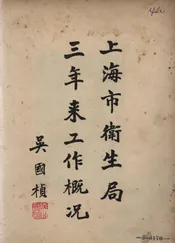 上海市衛生局
三年来工作概况
吳國楨